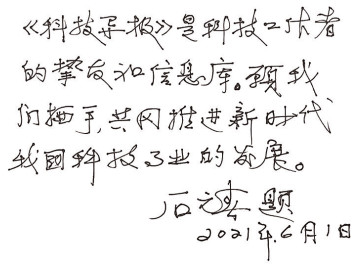 《科技导报》是科技工作者
的挚友和信息库。愿我
们携手,共同推进新时代
我国科技事业的发展。
石元春 题
2021年6月1日